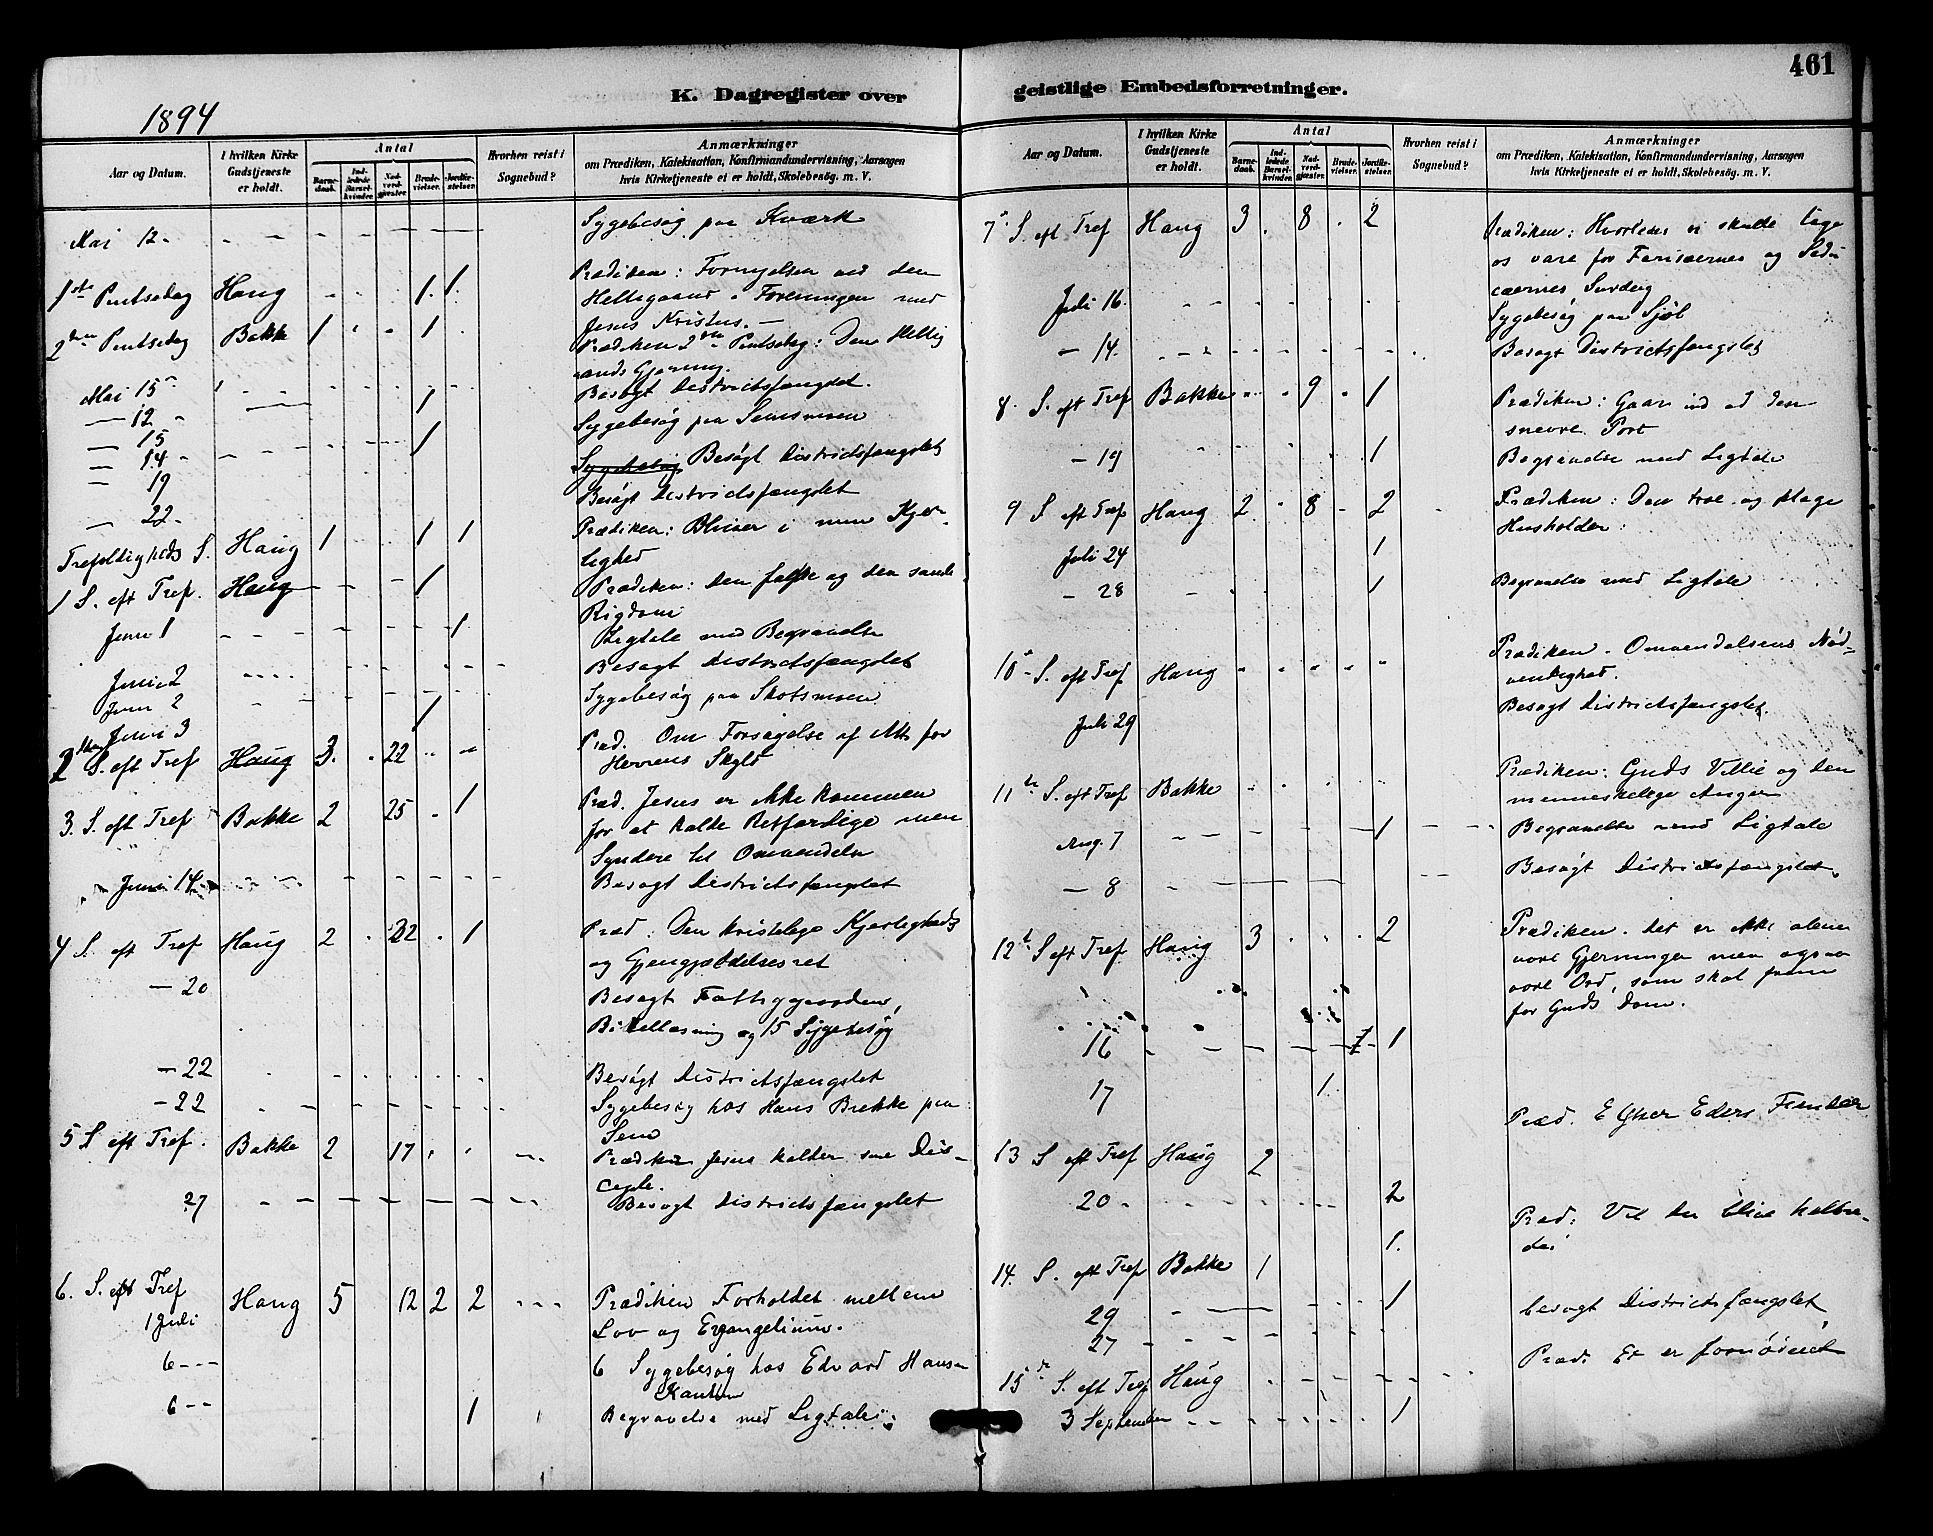 461
K. Dagregister over geistlige Embedsforretninger.
1894
Aar og Datum.
I hvilken Kirke Gudstjeneste er holdt.
Antal
Barnedaab.
Indledede Barselkvinder.
Nadverdgjæster.
Brudevielser.
Jordfæstelser.
Hvorhen reist i Sognebud?
Anmærkninger
om Prædiken, Katekisation, Konfirmandundervisning, Aarsagen
hvis Kirketjeneste ei er holdt, Skolebesøg. m. V.
Mai 12 Sygebesøg paa Kværk
1ste Pintsedag Haug 1. 1. Prædiken: Fornyelsen ved den
Helligaand i Foreningen med
Jesus Kristus.
2den Pintsedag Bakke 1 1 Prædiken 2den Pintsedag: Den Hellig
aands Gjerning.
Mai 15 Besøgt Districtsfængslet.
12 1 Sygebesøg paa
15
14 1 Sygebesøg Besøgt Districtsfængslet
19 Besøgt Districtsfængslet
22
Trefoldigheds S. Haug 1 1 1 Prædiken: Bliver i min Kjær-
lighed
1 S. eft Tref. Haug 1 Prædiken: Den falske og den sande
Rigdom
Juni 1 1 Ligtale med Begravelse
Juni 2 Besøgt Districtsfængslet
Juni 2 Sygebesøg paa Skotsmoen
Juni 3 1
2 S. eft Tref Haug 3. 22 Præd. Om Forsagelse af Alt for
Herrens Skyld
3. S. eft Tref Bakke 2 25 1 Præd. Jesus er ikke kommen
for at kalde Retfærdige men
Syndere til Omvendelse
Juni 14 Besøgt Districtsfængslet
4 S. eft Tref Haug 2 22 1 Præd: Den kristelige Kjærligheds
og Gjengjældelsesret
20 Besøgt Fattiggaarden,
Bibellæsning og 15 Sygebesøg
22 Besøgt Districtsfængslet
22 Sygebesøg hos Hans Brekke paa
Sem
5 S eft Tref. Bakke 2 17 Prædiken Jesus kalder sine Dis-
ciple.
27 Besøgt Districtsfængslet
6. S. eft Tref Haug 5 12 2 2 Prædiken Forholdet mellem
1 Juli Lov og Evangelium.
6 6 Sygebesøg hos Edvard Hansen
6 1 Begravelse med Ligtale
Aar og Datum.
I hvilken Kirke Gudstjeneste er holdt.
Antal
Barnedaab.
Indledede Barselkvinder.
Nadverdgjæster.
Brudevielser.
Jordfæstelser.
Hvorhen reist i Sognebud?
Anmærkninger
om Prædiken, Katekisation, Konfirmandundervisning, Aarsagen
hvis Kirketjeneste ei er holdt, Skolebesøg. m. V.
7 S. eft Tref Haug 3 8 2 Prædiken: Hvorledes vi skulle tage
os vare for Farisæernes og Sadu
cæernes Surdeig
Juli 16. Sygebesøg paa Sjøl
14. Besøgt Districtsfængslet
8. S. eft Tref Bakke 9 1 Prædiken: Gaar ind ad den
snevre Port
19 1 Begravelse med Ligtale
9 S eft Tref Haug 2 8 2 Prædiken: Den troe og kloge
Husholder.
Juli 24 1
28 1 Begravelse med Ligtale
10 S. eft Tref Haug Prædiken. Omvendelsens Nød-
vendighed.
Juli 29 Besøgt Districtsfængslet.
11te S. eft Tref Bakke Prædiken: Guds Villie og den
menneskelige Anger
Aug. 7 1 Begravelse med Ligtale
8 Besøgt Districtsfængslet,
12te S eft Tref Haug 3 2 Prædiken. Det er ikke alene
vore Gjerninger men ogsaa
vore Ord, som skal frem
for Guds Dom.
16 1 1
17 1.
13 S eft Tref Haug 2 Præd. Elsker Eders Fiender
20 2
1.
14. S. eft Tref Bakke 1 Præd: Vil du blive helbre-
det
29 1
27 besøgt Districtsfængslet
15de S. eft Tref Haug Præd: Et er fornødent
3 September 1